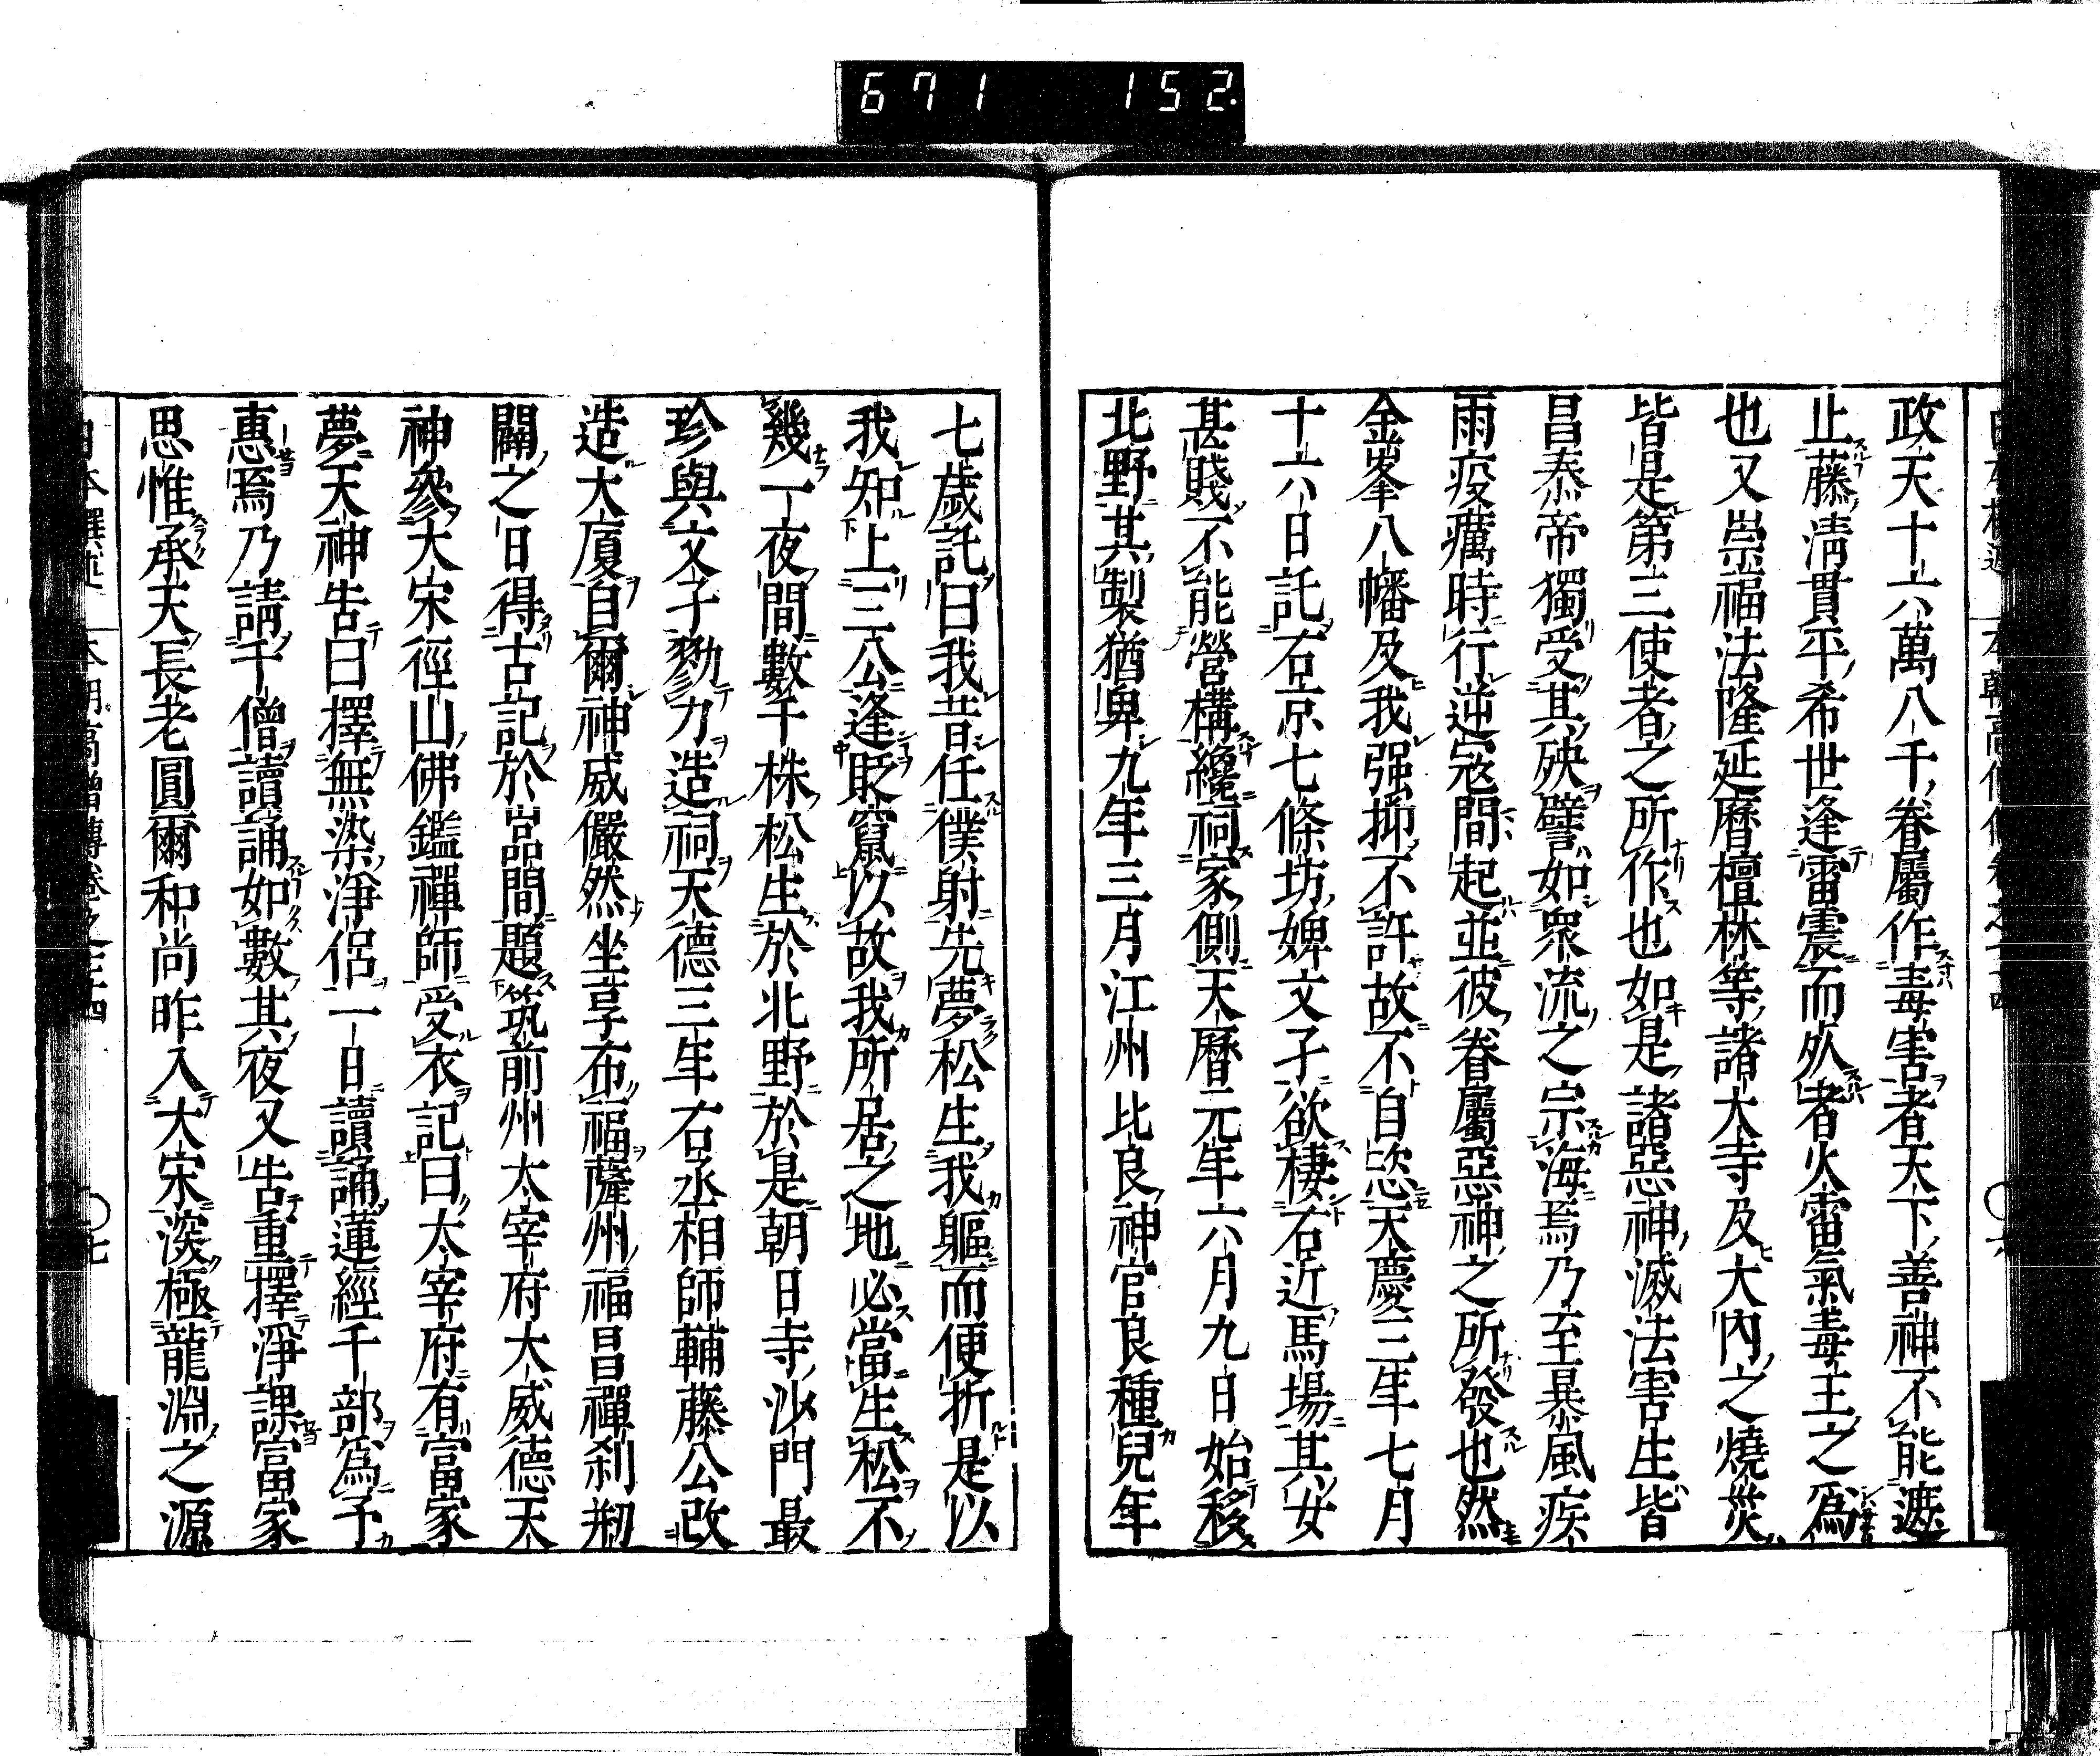 671 152
政天十六萬八千眷屬作毒害者天下善神不能遮
止藤淸貫平希世逢雷震而死者火雷氣毒王之爲
也又崇福法隆延曆檀林等諸大寺及大內之燒災
皆是第三使者之所作也如是諸惡神滅法害生皆
昌泰帝獨受其殃譬如衆流之宗海焉乃至暴風疾
雨疫癘時行逆寇間起並彼眷屬惡神之所發也然
金峯八幡及我强抑不許故不自恣天慶三年七月
十六日託右京七條坊婢文子欲棲右近馬場其女
甚賤不能營構纔祠家側天曆元年六月九日始移
北野其製猶卑九年三月江州比良神官良種兒年
七歲託曰我昔任僕射先夢松生我軀而便折是以
我知上三公逢貶竄以故我所居之地必當生松不
幾一夜間數千株松生於北野於是朝日寺沙門最
珍與文子勠力造祠天德三年右丞相師輔藤公改
造大廈自爾神威儼然坐享布福薩州福昌禪刹剏
闢之日得古記於嵓間題筑前州太宰府大威德天
神參大宋徑山佛鑑禪師受衣記曰太宰府有富家
夢天神告曰擇無染淨侶一日讀誦蓮經千部爲予
惠焉乃請千僧讀誦如數其夜又告重擇淨課富家
思惟承天長老圓爾和尚昨入大宋深極龍淵之源
日本撰述 本朝高僧傳卷之七十四 ○七